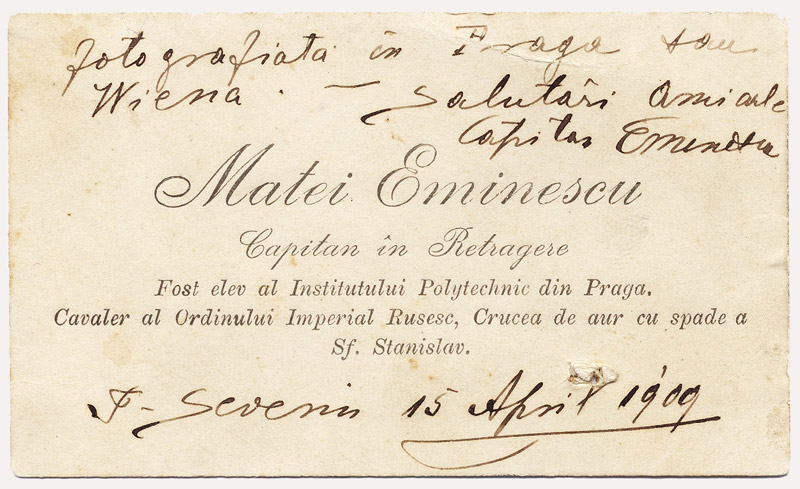 fotografiată în Praga sau
Wiena. — Salutări amicale
Capitan Eminescu
Matei Eminescu
Capitan în Retragere
Fost elev al Institutului Polytechnic din Praga.
Cavaler al Ordinului Imperial Rusesc, Crucea de aur cu spade a
Sf. Stanislav.
T-Severin 15 April 1909